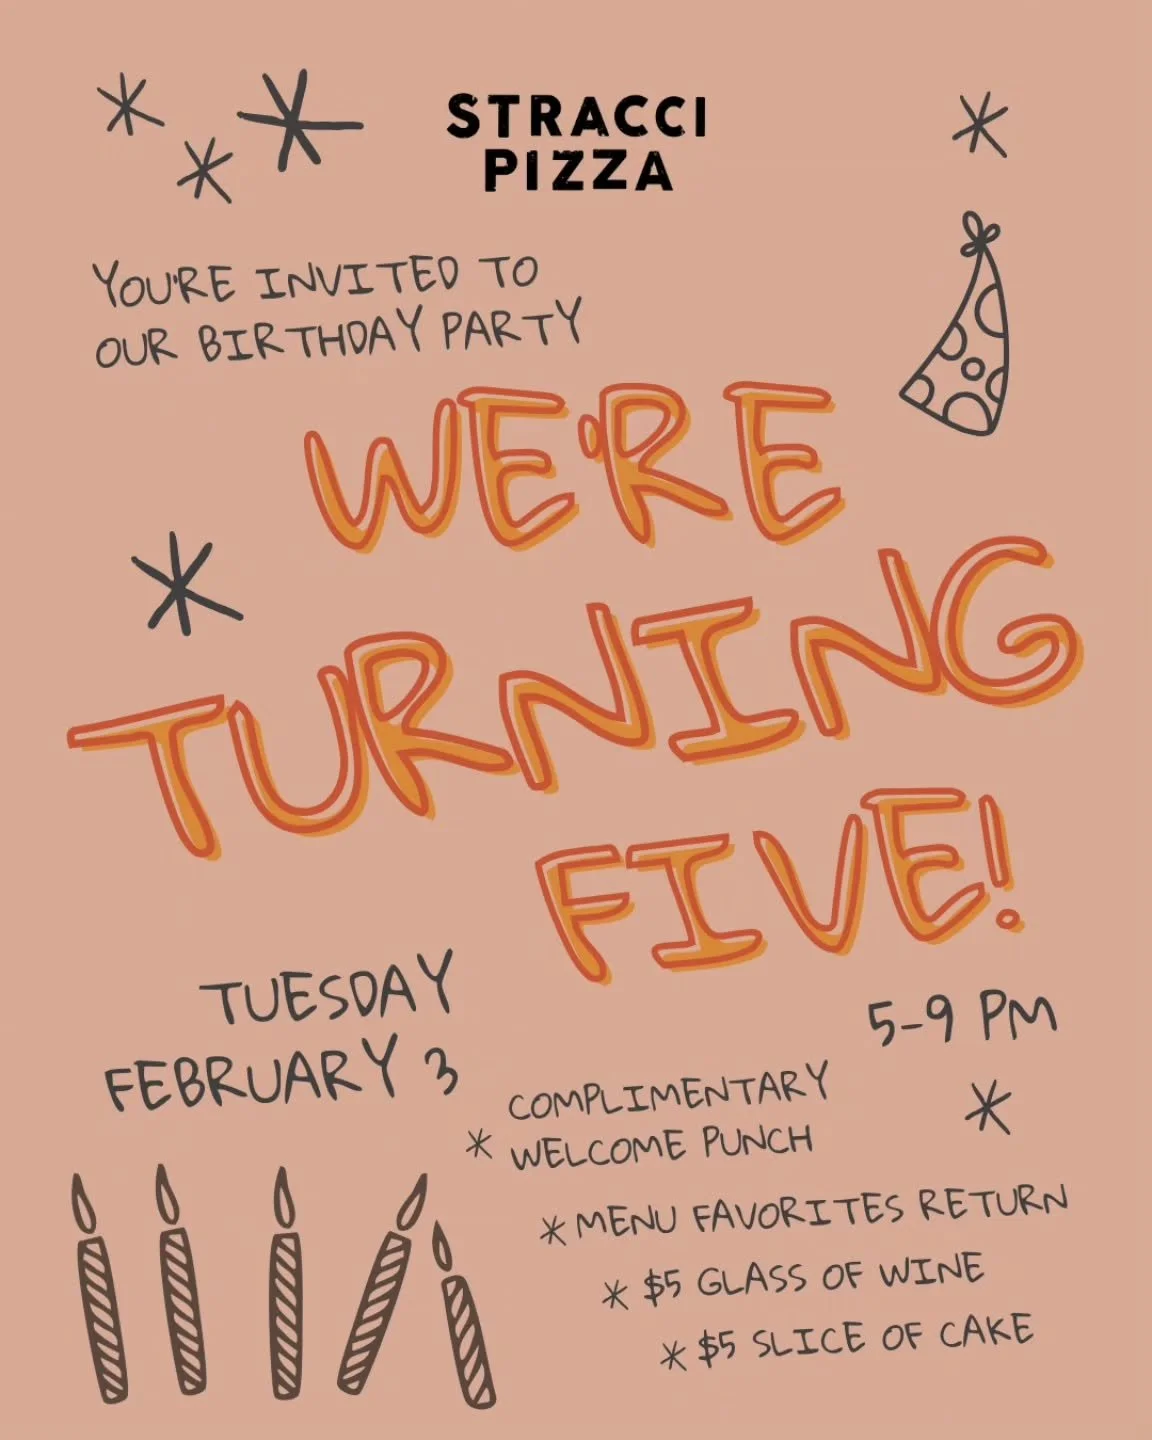 STRACCI
PIZZA
YOU'RE INVITED TO
OUR BIRTHDAY PARTY
WE'RE
TURNING
FIVE!
TUESDAY
FEBRUARY 3
5-9 PM
* COMPLIMENTARY
WELCOME PUNCH
* MENU FAVORITES RETURN
* $5 GLASS OF WINE
* $5 SLICE OF CAKE